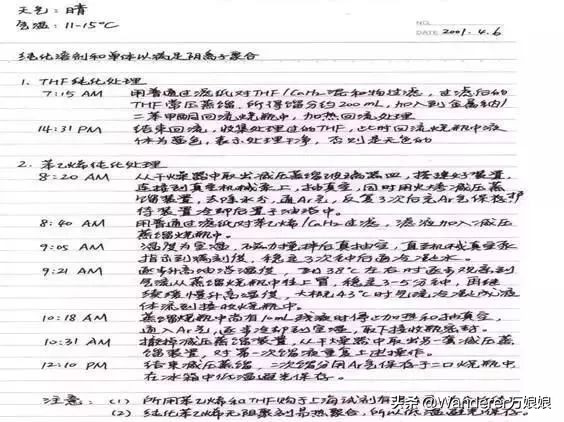 天气：晴
气温：11-15℃
NO.
DATE 2001.4.6
纯化溶剂和单体以满足阴离子聚合
1. THF纯化处理
7:15 AM 用普通过滤纸对THF/CaH₂混和物过滤，过滤后的
THF常压蒸馏，所得馏分约200mL，加入到金属钠/
二苯甲酮回流烧瓶中，加热回流处理
14:31 PM 结束回流，收集处理过的THF，此时回流烧瓶中液
体为蓝色，表示处理干净，否则是无色的
2. 苯乙烯纯化处理
8:20 AM 从干燥器中取出减压蒸馏玻璃器皿，搭建好装置，
连接到真空机械泵上，抽真空，同时用火烤减压蒸
馏装置，去除水分，通Ar气，反复3次后充Ar气保存
待装置冷却后置于油浴中。
8:40 AM 用普通过滤纸对苯乙烯/CaH₂过滤，滤液加入减压
蒸馏烧瓶中。
9:05 AM 温度为室温，不磁力搅拌后真抽空，真空机械真空泵
指示到满刻度，稳定3次钟后通冷凝水。
9:21 AM 逐步升高油浴温度，到38℃左右时逐步观察到
气流从蒸馏烧瓶中往上冒，稳定3-5分钟，再继
续缓慢升高温度，大概43℃时气流冷凝成液
体流到接收烧瓶中。
10:18 AM 蒸馏烧瓶中尚有10mL残液时停止加热和抽真空，
通入Ar气，逐步冷却到室温，取下接收瓶密封。
10:31 AM 拆掉减压蒸馏装置，从干燥器中取出另一套减压蒸
馏装置，对第一次馏液重复上述操作。
12:10 PM 结束减压蒸馏，二次馏分用Ar气保存于二口烧瓶中
在冰箱中低温避光保存。
注意：(1) 所用苯乙烯和THF购于上海试剂有
(2) 纯化苯乙烯无阻聚剂易热聚合，所以低温避光保存。
头条 @Wanderer方娘娘